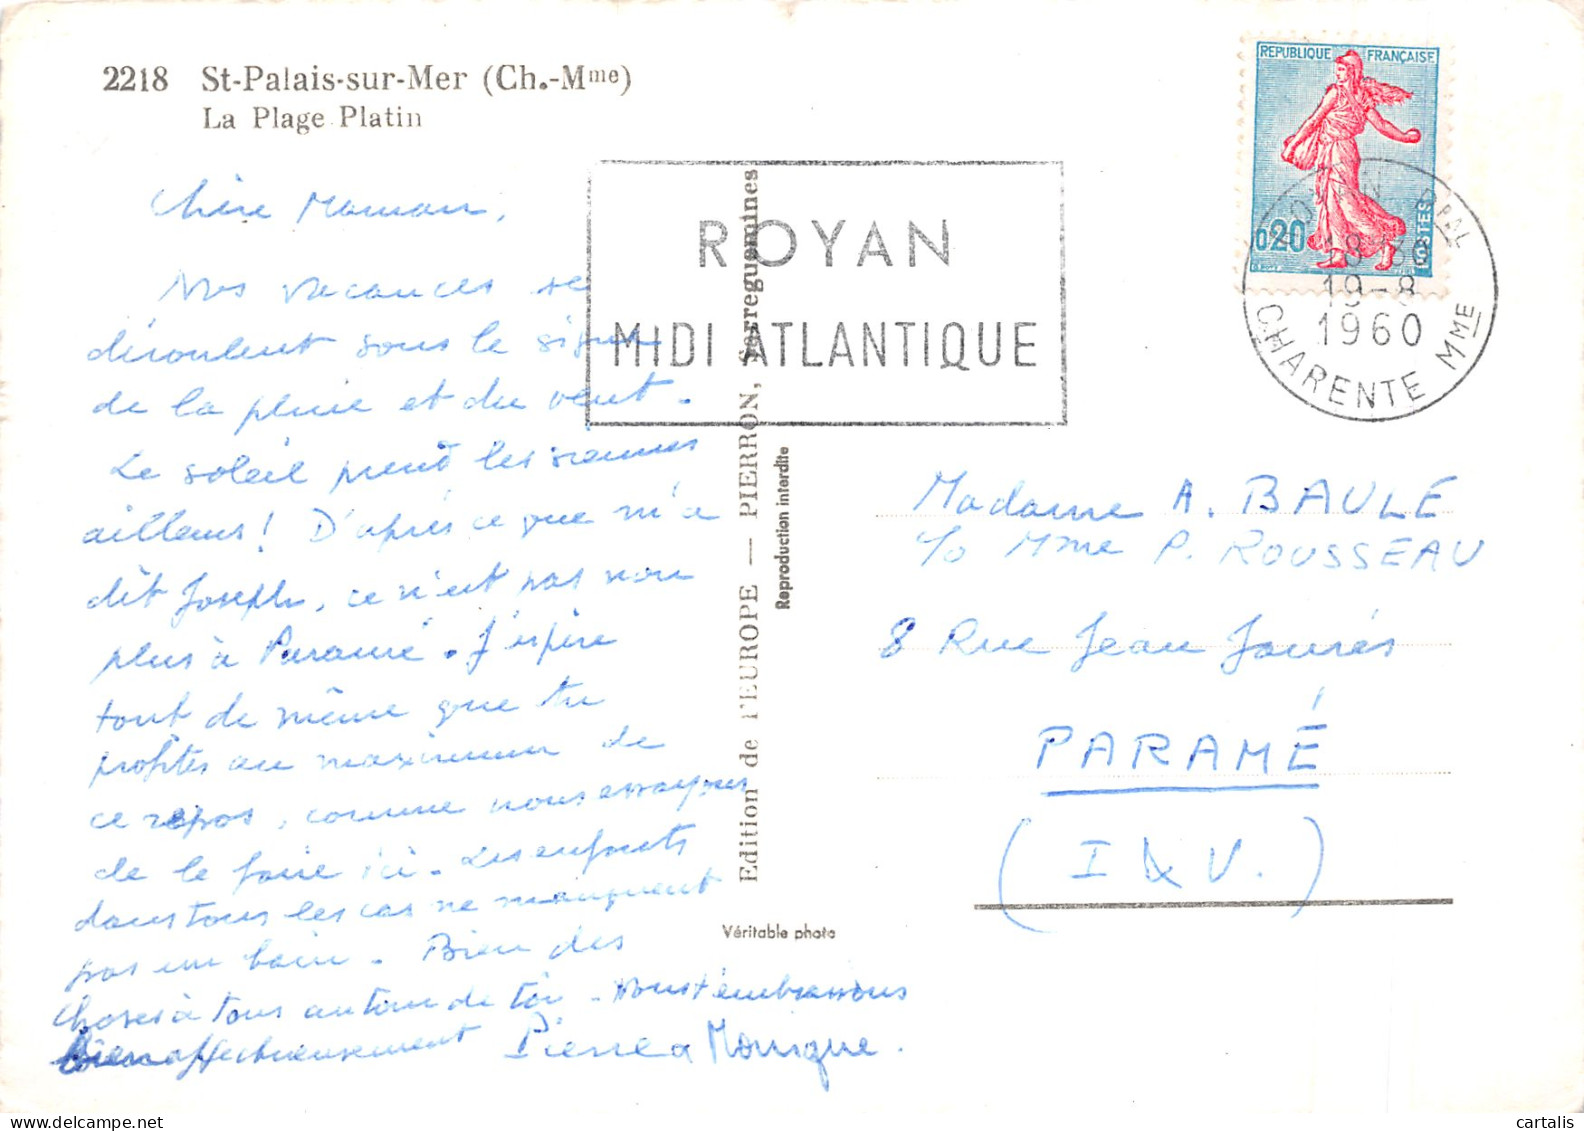 2218 St-Palais-sur-Mer (Ch.-Mme)
La Plage Platin
Chère Maman,
Nos vacances se
déroulent sous le signe
de la pluie et du vent.
Le soleil prend les siennes
ailleurs ! D'après ce que m'a
dit Joseph, ce n'est pas non
plus à Paramé. J'espère
tout de même que tu
profites au maximum de
ce repos, comme nous essayons
de le faire ici. Les enfants
dans tous les cas ne manquent
pas un bain. Bien des
choses à tous autour de toi. Nous t'embrassons
bien affectueusement Pierre & Monique.
Edition de l'EUROPE — PIERRON, Sarreguemines
Reproduction interdite
Véritable photo
ROYAN
MIDI ATLANTIQUE
REPUBLIQUE FRANÇAISE
0,20
POSTES
ROYAN PPAL
18 30
19-8
1960
CHARENTE MME
Madame A. BAULE
c/o Mme P. ROUSSEAU
8 Rue Jean Jaurés
PARAMÉ
(I & V.)
cartalis
www.delcampe.net